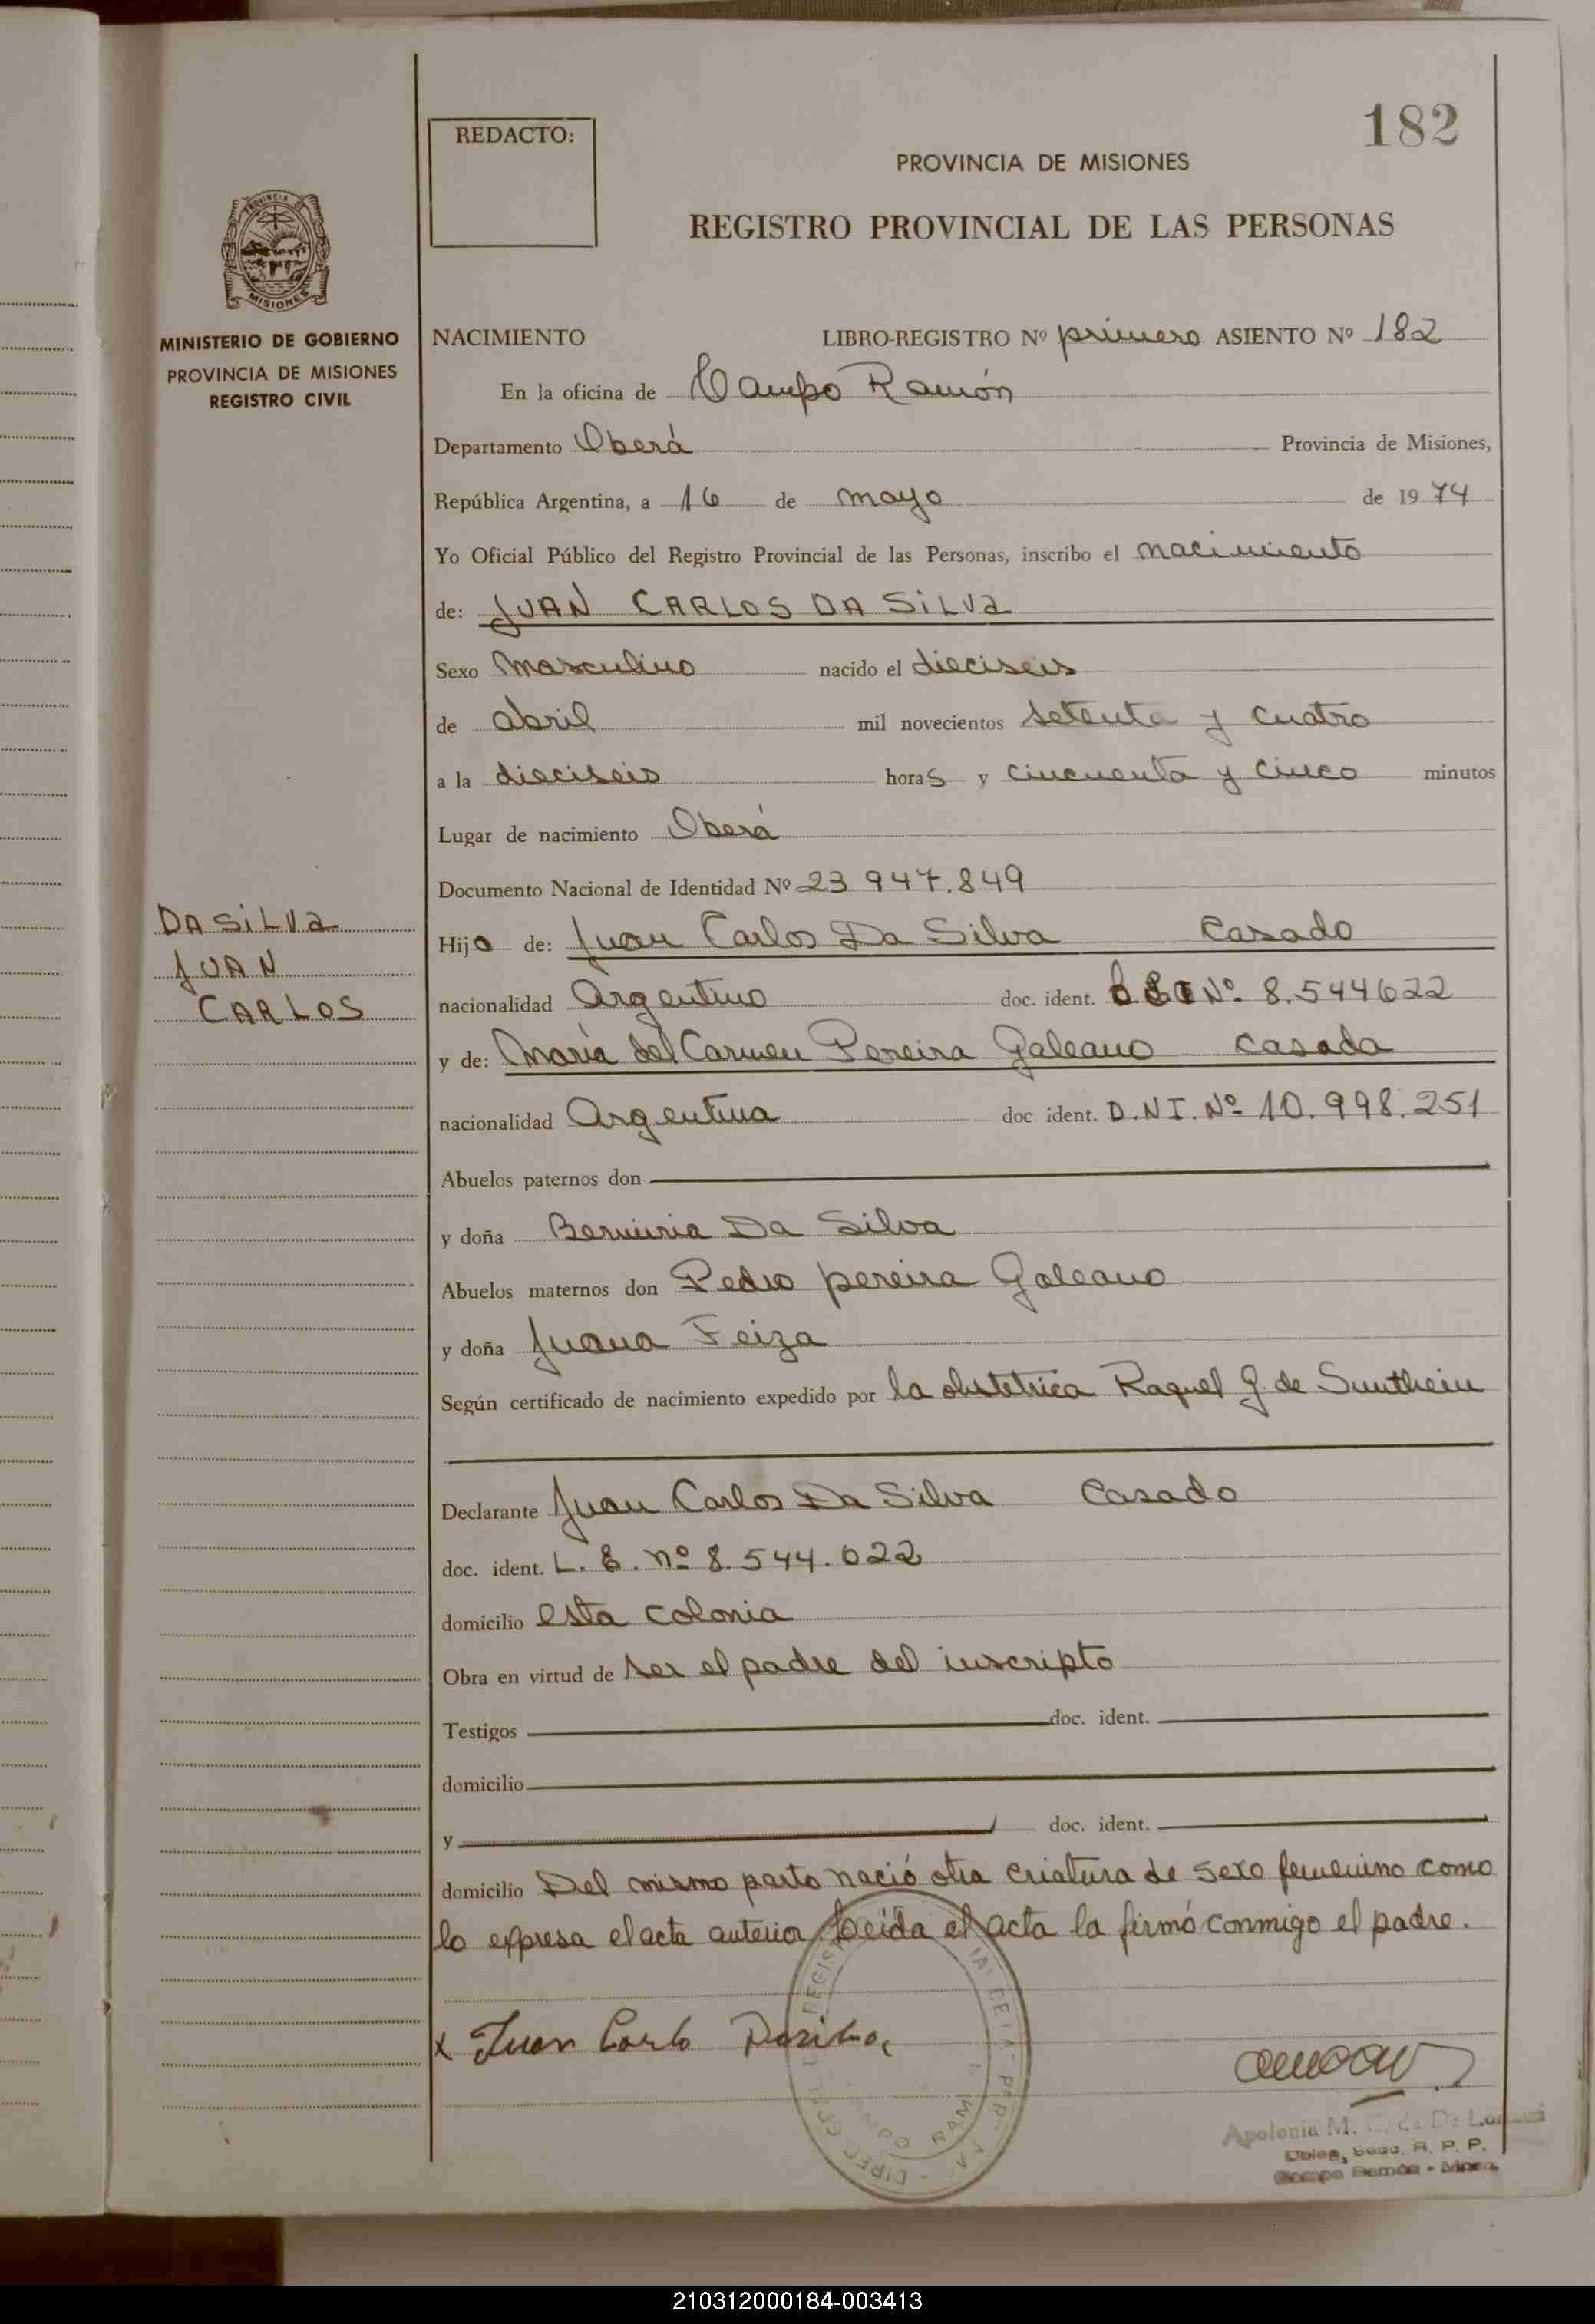 182
REDACTO:
PROVINCIA DE MISIONES
REGISTRO PROVINCIAL DE LAS PERSONAS
PROVINCIA DE
MISIONES
MINISTERIO DE GOBIERNO
PROVINCIA DE MISIONES
REGISTRO CIVIL
NACIMIENTO LIBRO-REGISTRO Nº primero ASIENTO Nº 182
En la oficina de Campo Ramón
Departamento Oberá Provincia de Misiones,
República Argentina, a 16 de mayo de 1974
Yo Oficial Público del Registro Provincial de las Personas, inscribo el nacimiento
de: JUAN CARLOS DA SILVA
Sexo Masculino nacido el dieciseis
de abril mil novecientos setenta y cuatro
a la dieciseis horas y cincuenta y cinco minutos
Lugar de nacimiento Oberá
Documento Nacional de Identidad Nº 23 947.849
DA SILVA
JUAN
CARLOS
Hijo de: Juan Carlos Da Silva Casado
nacionalidad Argentino doc. ident. Nº 8.544622
y de: María del Carmen Pereira Galeano casada
nacionalidad Argentina doc ident. D.N I. Nº 10.998.251
Abuelos paternos don
y doña Da Silva
Abuelos maternos don Pedro pereira Galeano
y doña Juana Feiza
Según certificado de nacimiento expedido por la obstetrica Raquel G. de
Declarante Juan Carlos Da Silva Casado
doc. ident. L. E. nº 8.544.622
domicilio esta colonia
Obra en virtud de ser el padre del inscripto
Testigos doc. ident.
domicilio
y doc. ident.
domicilio Del mismo parto nació otra criatura de sexo femenino como
lo expresa el acta anterior, Leida el acta la firmó conmigo el padre.
x Juan Carlo Dasilva
Apolonia M. C. de De
R. P. P.
Campo Ramón - Mnes.
210312000184-003413